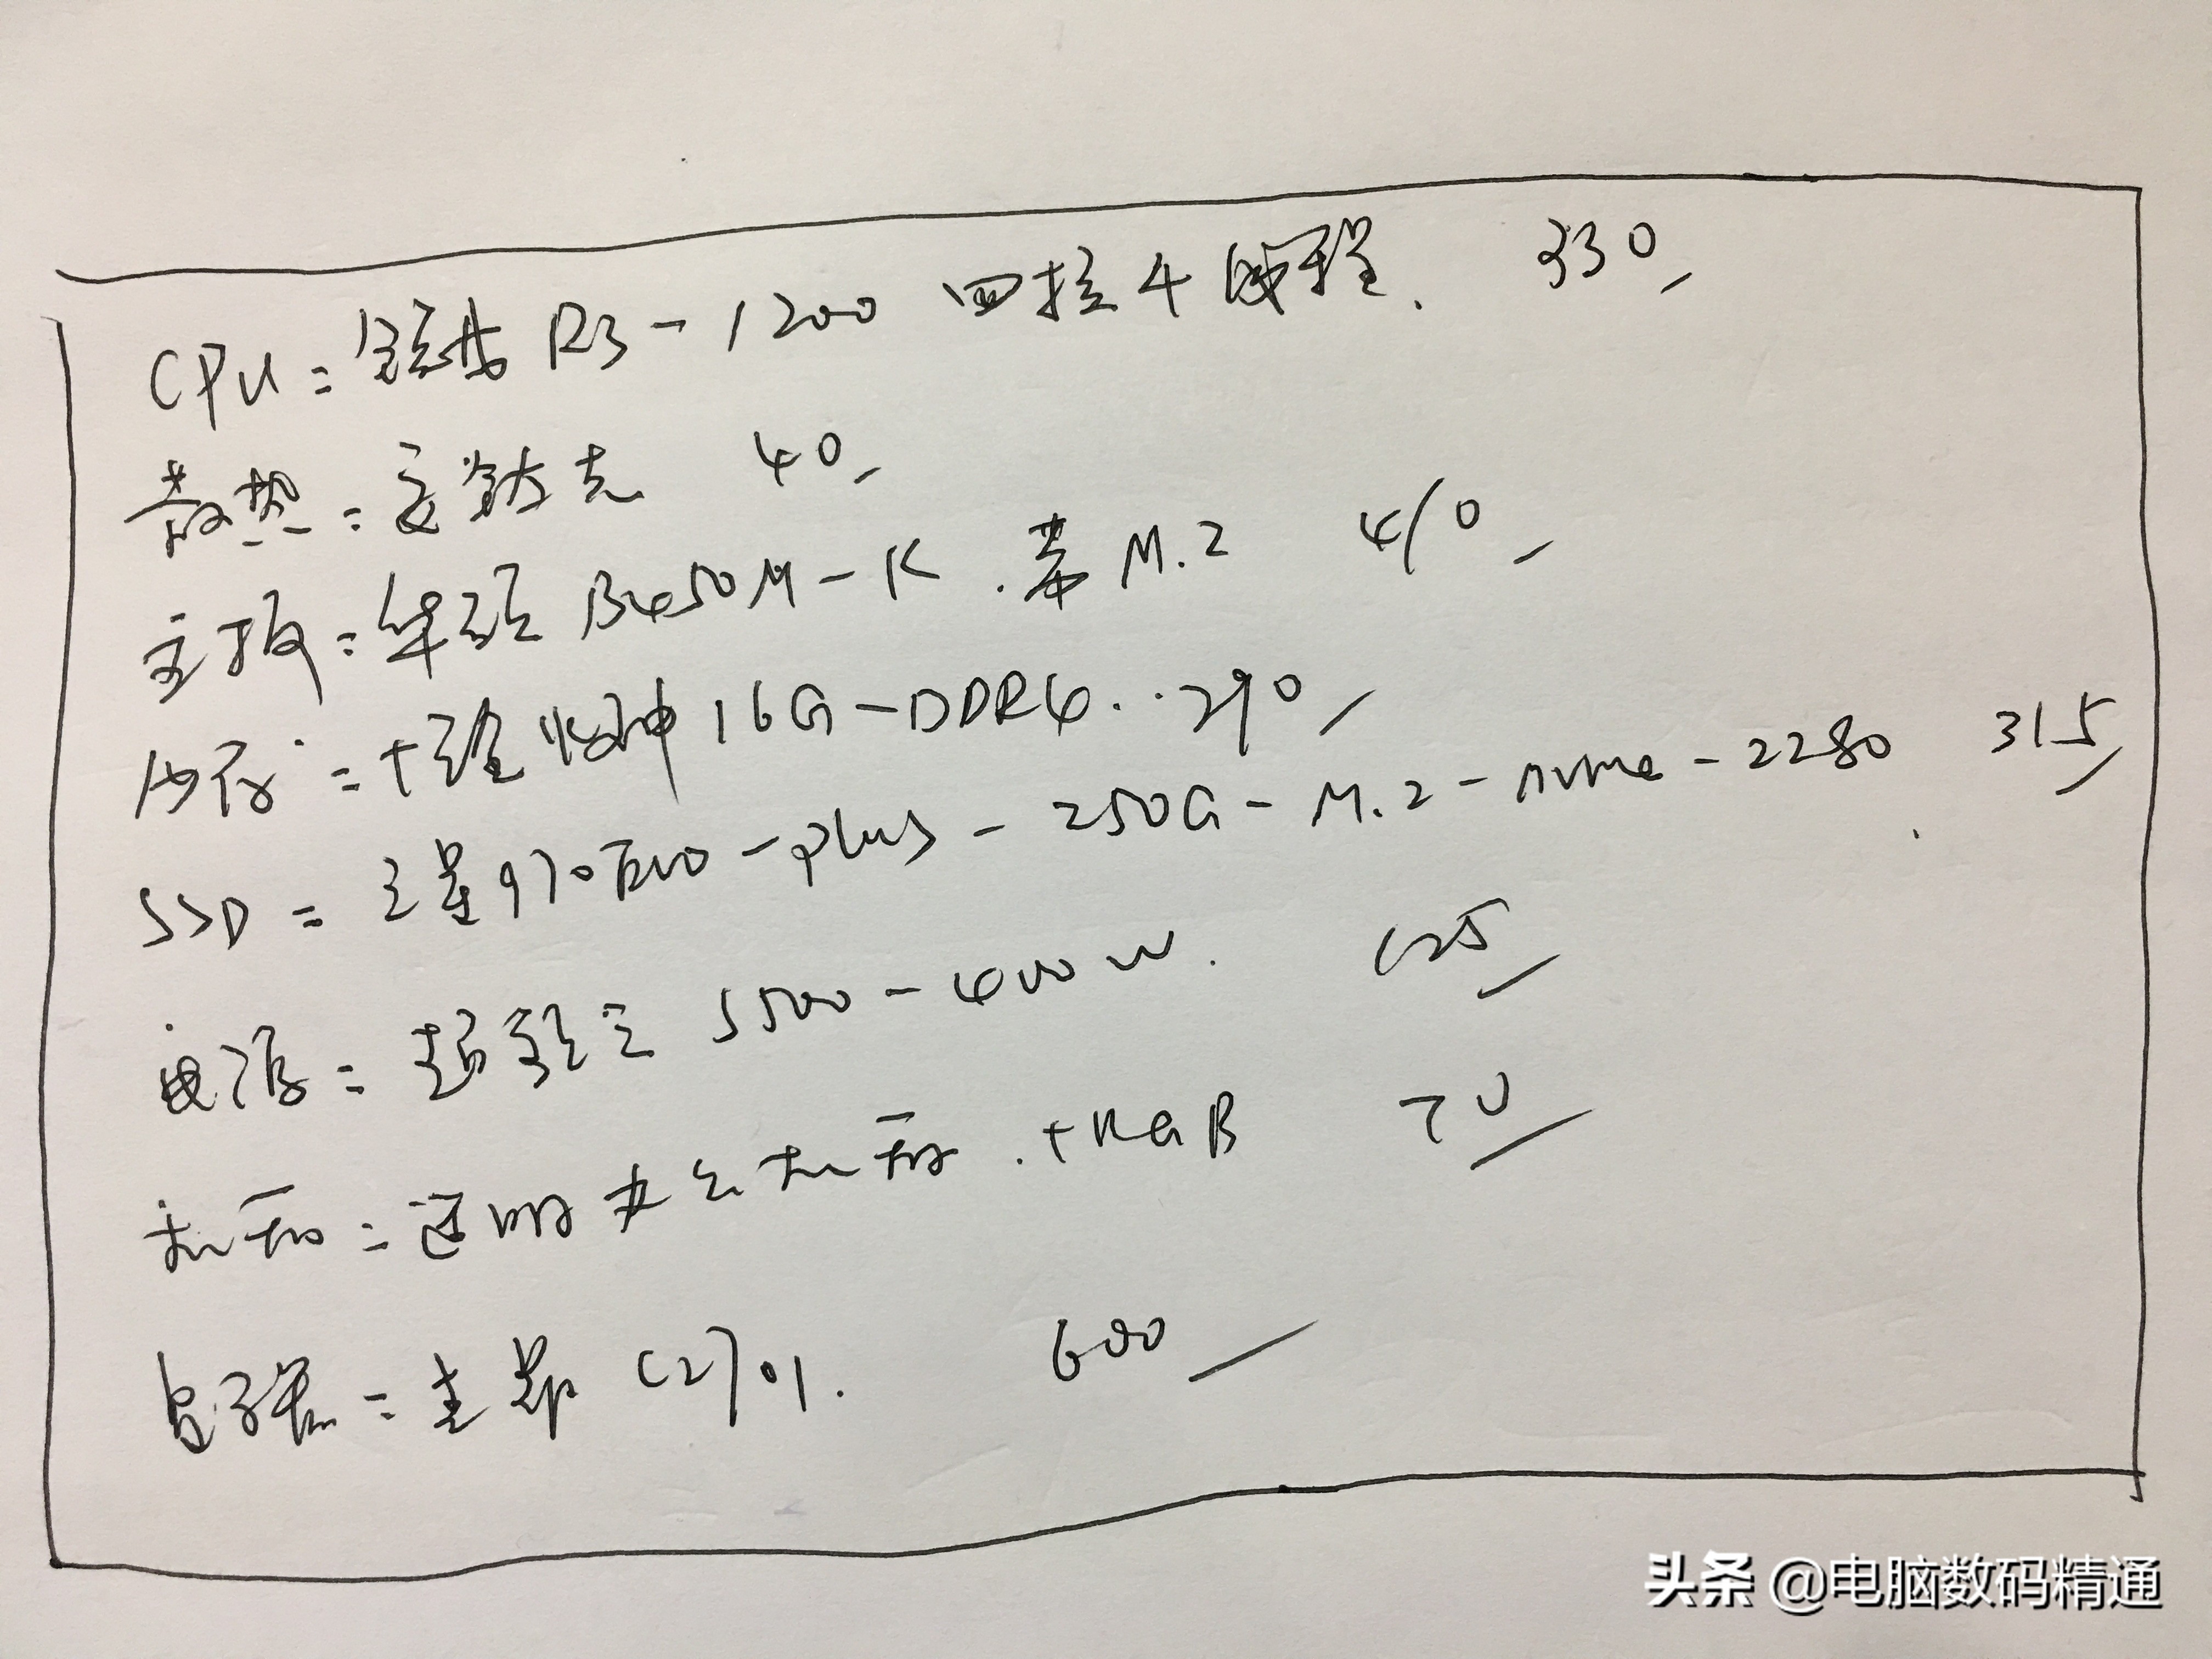 CPU=锐龙R3-1200 四核4线程. 330
散热=玄钛克 40
主板=华硕B450M-K.带M.2 410
内存=十铨火神16G-DDR4..290
SSD=三星970EVO-plus-250G-M.2-nvme-2280 315
电源=超频三S500-400W. 125
机箱=透明办公机箱.+RGB 70
显示器= C270i. 600
头条 @电脑数码精通